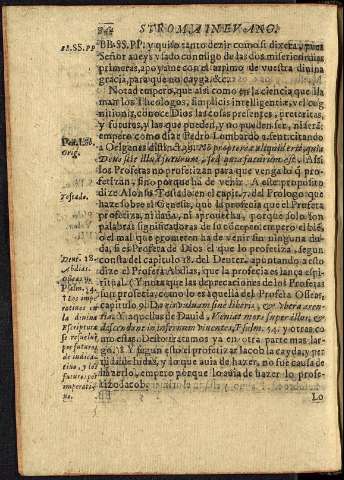 STROMA IN EVANG.
BB.SS.PP.
BB.SS.PP. y quiso tanto dezir como si dixera, pues
Señor aueys vsado conmigo de las dos misericordias
primeras, apoyame con el arrimo de vuestra diuina
gracia, para que no cayga &c.
Notad empero, que assi como en la ciencia que lla
man los Theologos, simplicis intelligentiæ, vel cog
nitionis, conoce Dios las cosas presentes, preteritas,
y futuras, y las que pueden, y no pueden ser, ni serã:
empero como dize Pedro Lombardo
Orig.
a Origenes
Deus
los Profetas no profetizan para que venga lo q̃ pro-
fetizan, sino porque ha de venir. A este proposito
Tostado.
dize Alonso Tostado en el cap. 7. del Prologo que
haze sobre el Genesis, que la profecia que el Profeta
profetiza, ni daña, ni aprouecha, porque solo son
palabras significadoras de su concepto: empero el biẽ,
o el mal que prometen ha de venir sin ninguna du-
da, si es Profeta de Dios el que lo profetiza, segun
Deut. 18.
consta del capitulo 18. del Deuter. apuntando a esto
Abdias.
dize el Profeta Abdias, que la profecia es lança espi-
Oseas 9.
ritual. (Y nota que las deprecaciones de los Profetas
Psalm. 54.
son profecias, como lo es aquella del Profeta Oseas,
capitulo 9. Da eis vuluam sine liberis, & vbera aren-
tia. Y aquellas de Dauid, Veniat mors super illos, &
descendant in infernum viuentes, Psalm. 54. y otras co
mo estas. Destotratamos ya en otra parte mas lar-
go.) Y segun esto el profetizar Iacob la cayda, y per
dida de Iudas, y lo que auia de hazer, no fue causa de
hazerlo, empero porque lo auia de hazer lo profe-
tizò Iacob.
¶ Los imperatiuos
en la diuina
Escriptura
se resueluẽ
por futuros
de indica-
tiuo, y los
futuros por
imperati-
uo.
Lo